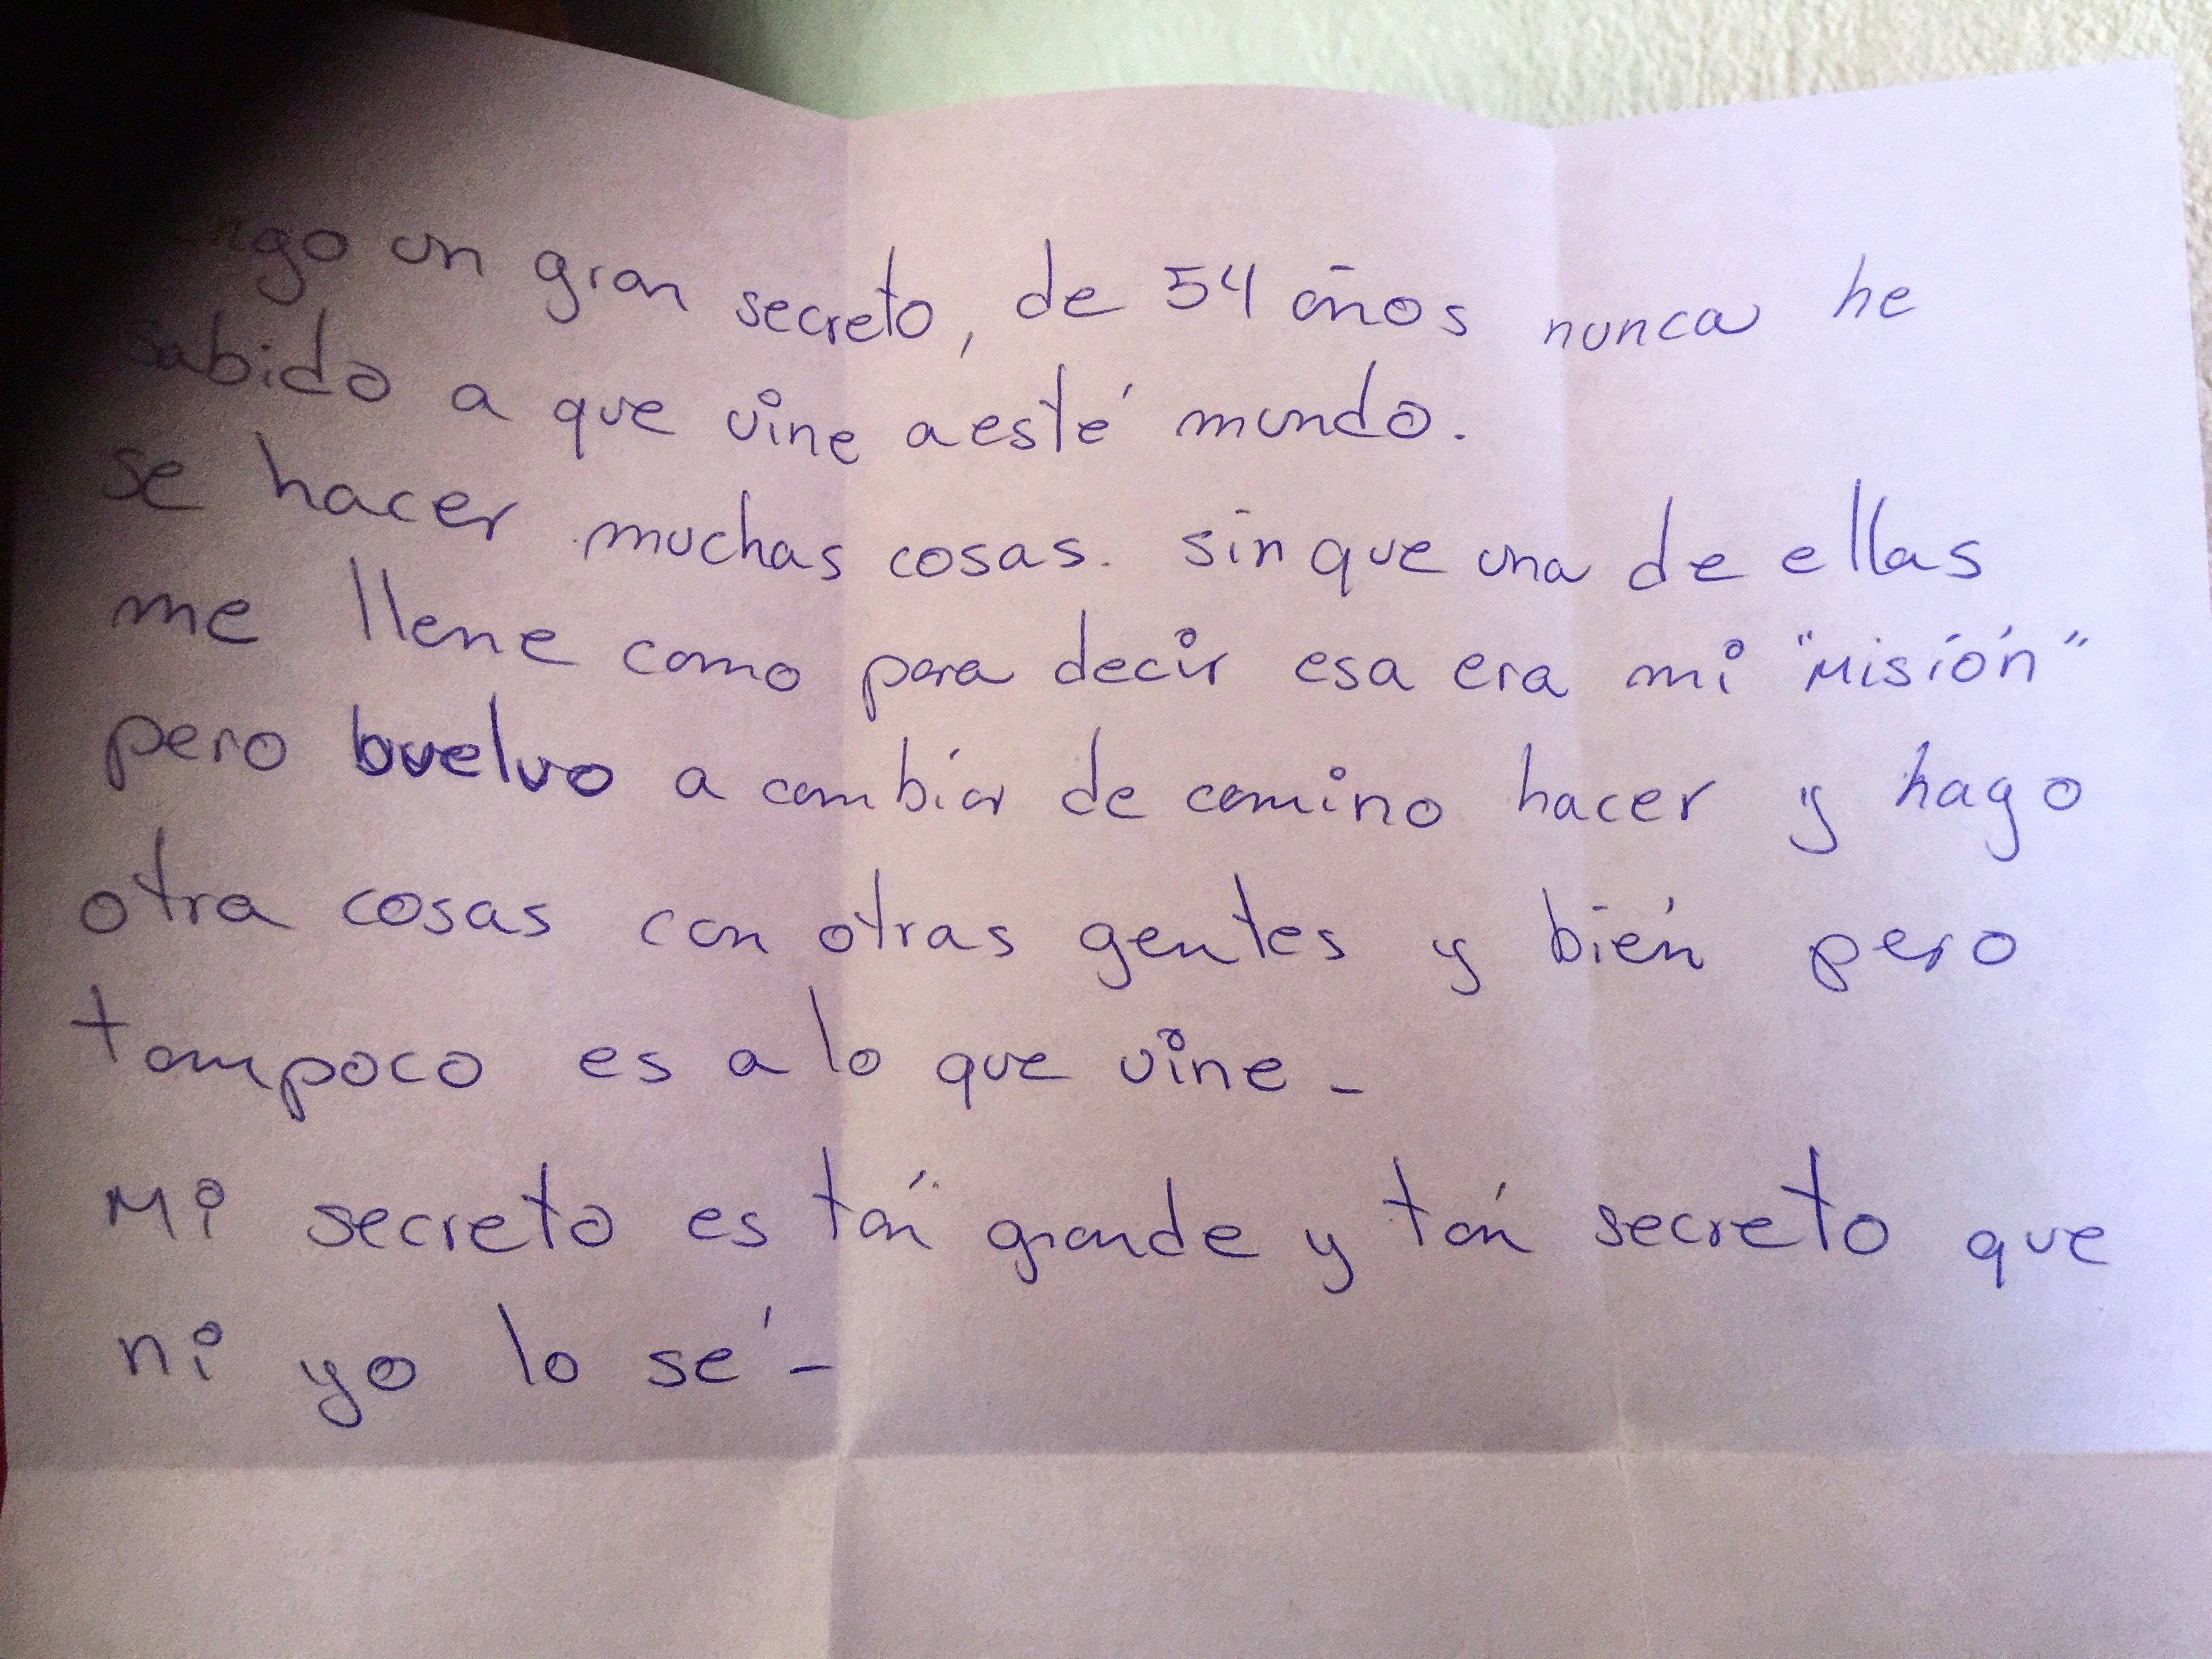 ngo un gran secreto, de 54 años nunca he
sabido a que vine a esté mundo.
se hacer muchas cosas. sin que una de ellas
me llene como para decir esa era mi "Misión"
pero buelvo a cambiar de camino hacer y hago
otra cosas con otras gentes y bién pero
tampoco es a lo que vine -
Mi secreto es tán grande y tán secreto que
ni yo lo sé -